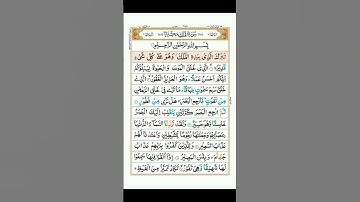 سُوْرَةُ الْمُلْكِ مَكِّيَّةٌ
بِسْمِ اللهِ الرَّحْمٰنِ الرَّحِيْمِ
تَبٰرَكَ الَّذِيْ بِيَدِهِ الْمُلْكُ وَهُوَ عَلٰى كُلِّ شَيْءٍ
قَدِيْرُ ۙ الَّذِيْ خَلَقَ الْمَوْتَ وَالْحَيٰوةَ لِيَبْلُوَكُمْ
اَيُّكُمْ اَحْسَنُ عَمَلًا ؕ وَهُوَ الْعَزِيْزُ الْغَفُوْرُ ۙ الَّذِيْ
خَلَقَ سَبْعَ سَمٰوٰتٍ طِبَاقًا ؕ مَا تَرٰى فِيْ خَلْقِ الرَّحْمٰنِ
مِنْ تَفٰوُتٍ ؕ فَارْجِعِ الْبَصَرَ ۙ هَلْ تَرٰى مِنْ فُطُوْرٍ
ثُمَّ ارْجِعِ الْبَصَرَ كَرَّتَيْنِ يَنْقَلِبْ اِلَيْكَ الْبَصَرُ
خَاسِئًا وَّهُوَ حَسِيْرٌ وَلَقَدْ زَيَّنَّا السَّمَآءَ الدُّنْيَا
بِمَصَابِيْحَ وَجَعَلْنٰهَا رُجُوْمًا لِّلشَّيٰطِيْنِ وَاَعْتَدْنَا لَهُمْ
عَذَابَ السَّعِيْرِ وَلِلَّذِيْنَ كَفَرُوْا بِرَبِّهِمْ عَذَابُ
جَهَنَّمَ ؕ وَبِئْسَ الْمَصِيْرُ اِذَآ اُلْقُوْا فِيْهَا سَمِعُوْا
لَهَا شَهِيْقًا وَّهِيَ تَفُوْرُ ۙ تَكَادُ تَمَيَّزُ مِنَ الْغَيْظِ ؕ